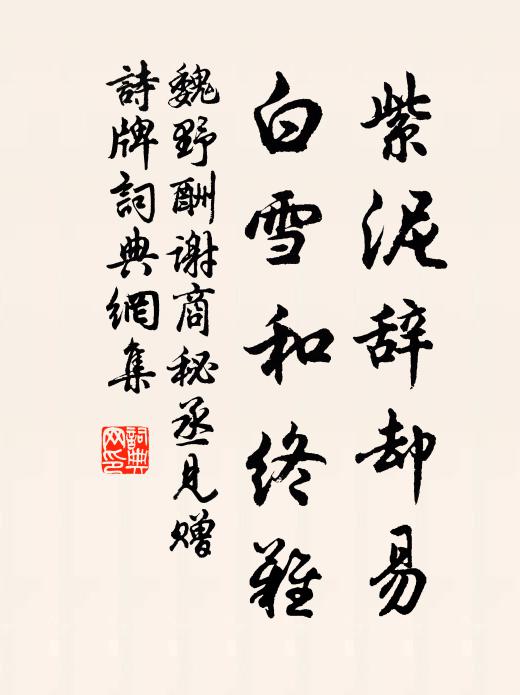 紫泥辞却易
白雪和终難
魏野酬谢商秘丞見赠
詩牌詞典網集
詞典网印